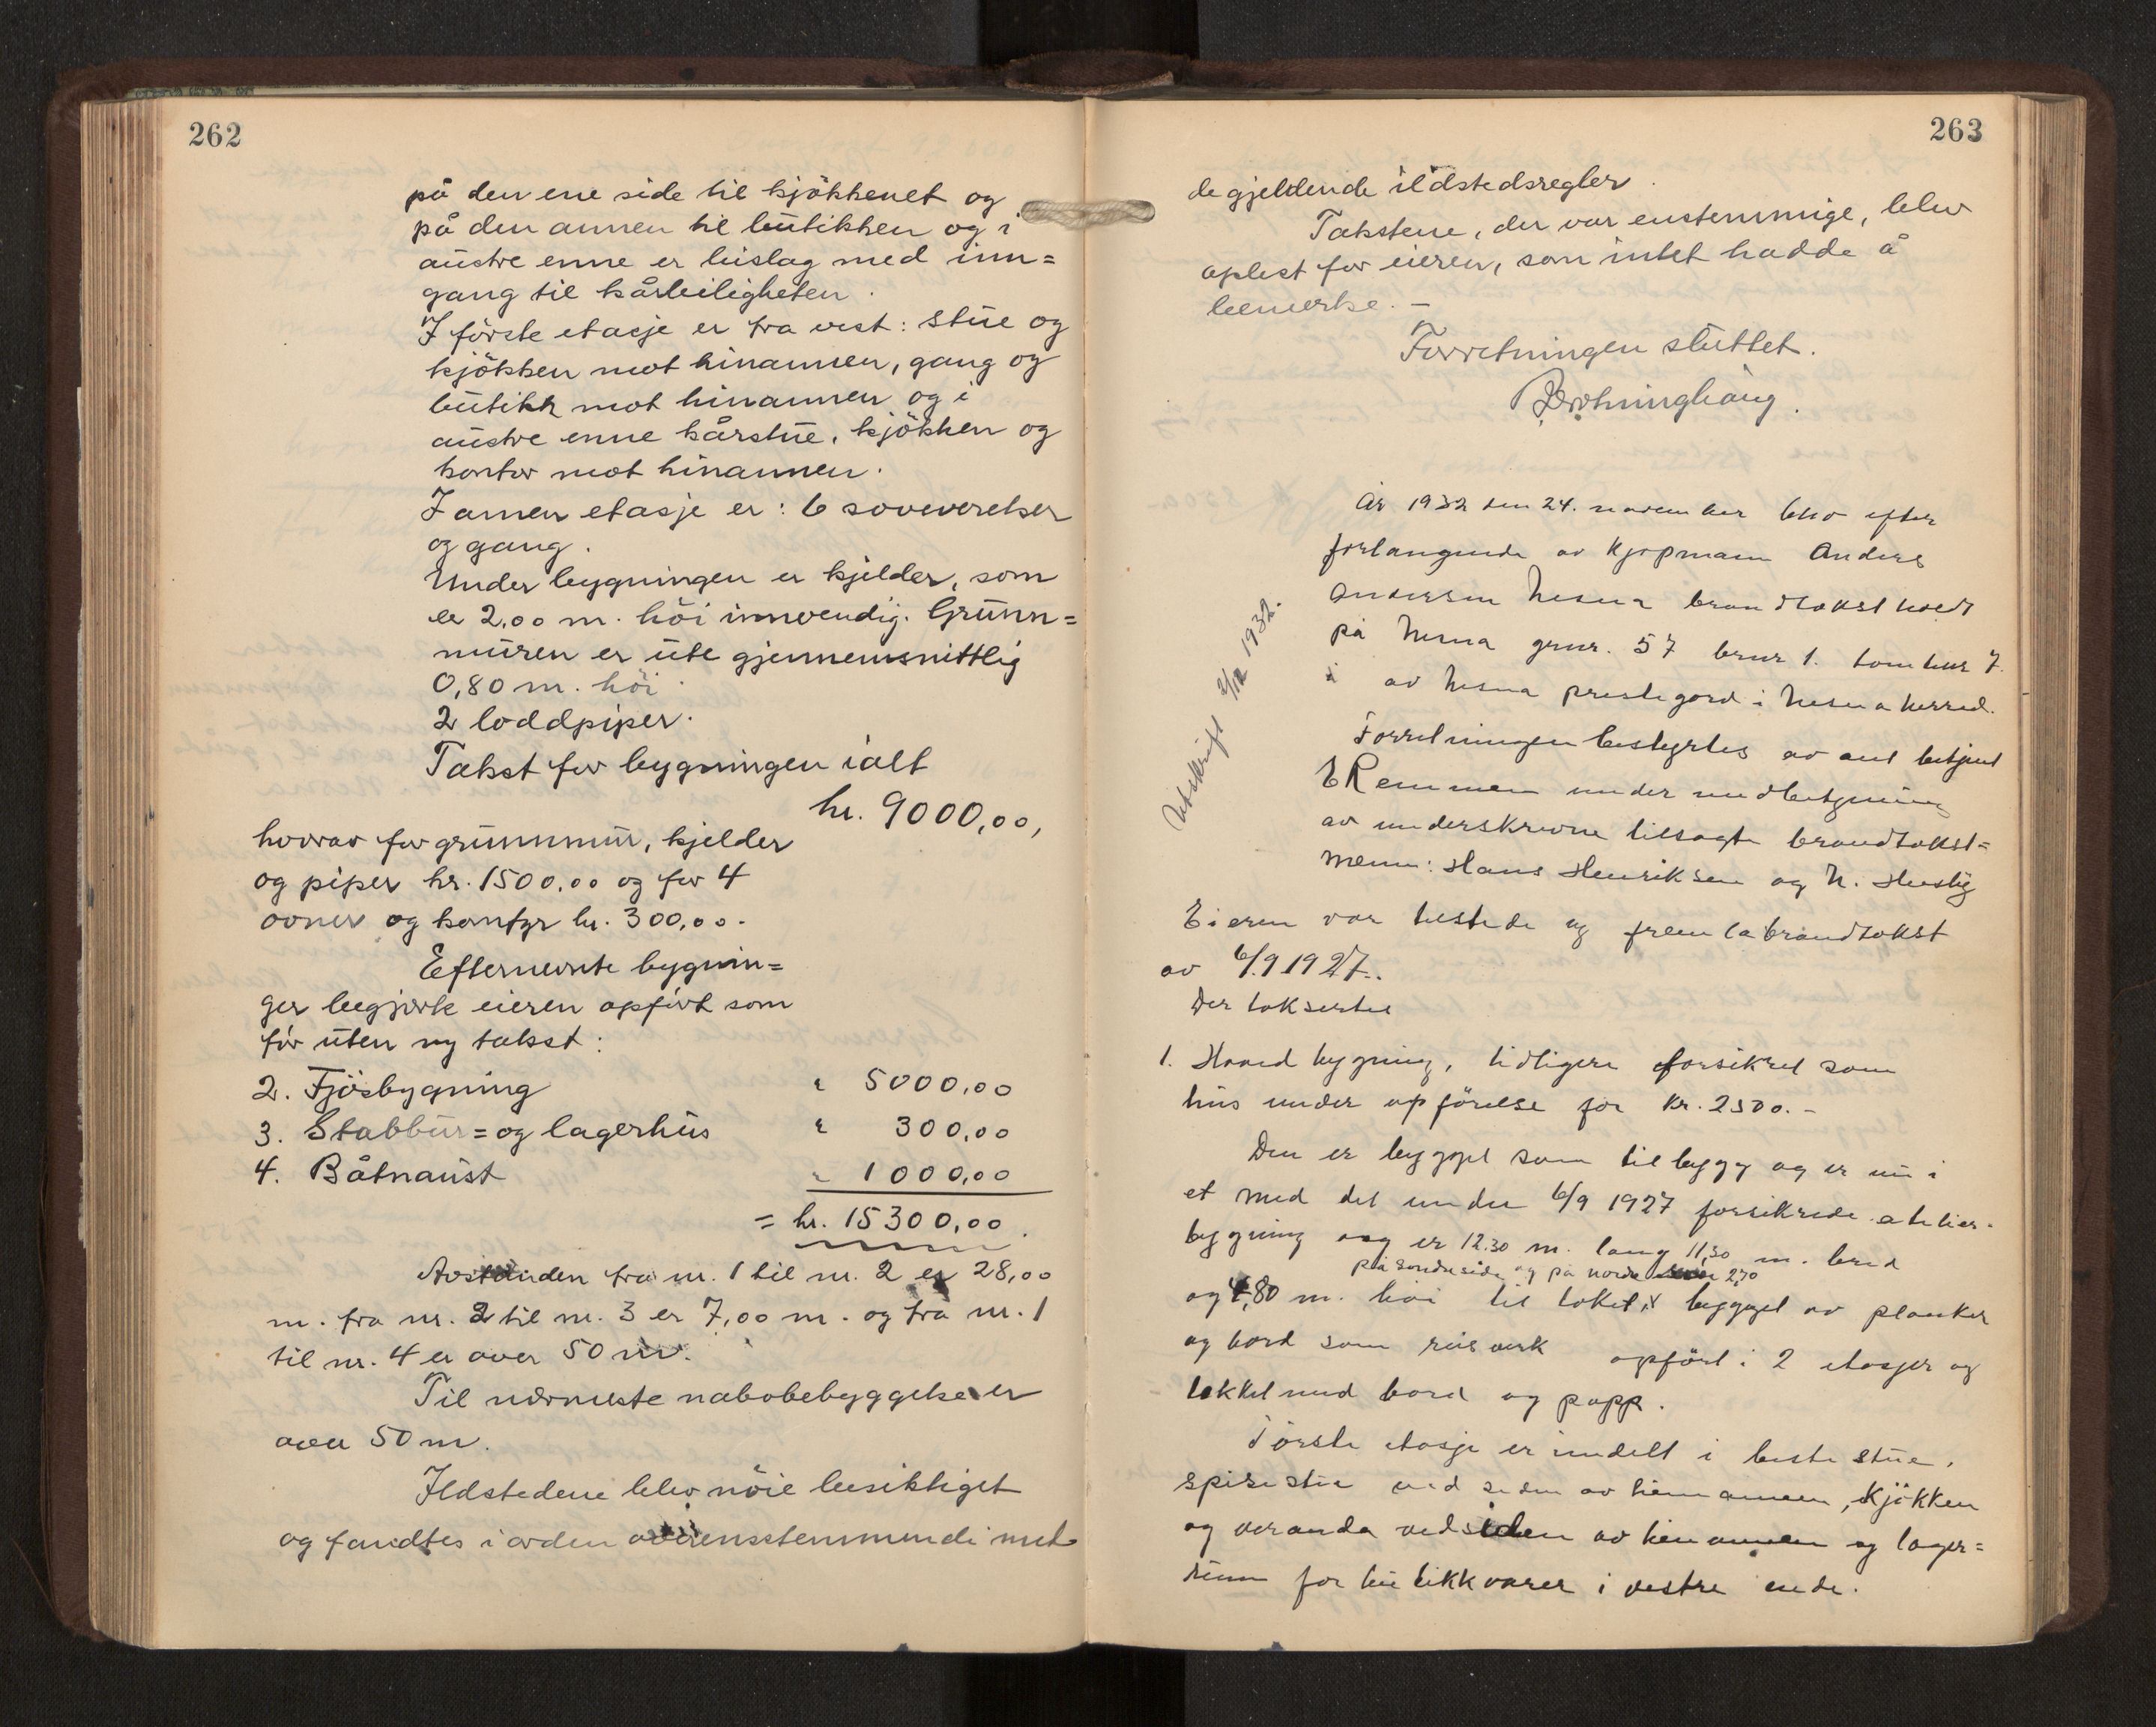 262
på den ene side til kjökkenet og
på den annen til butikken og i
austre enne er bislag med inn=
gang til kårleiligheten.
I förste etasje er fra vest: stue og
kjökken mot hinannen, gang og
butikk mot hinannen og i
austre enne kårstue, kjökken og
kontor mot hinannen.
I annen etasje er: 6 soveverelser
og gang.
Under bygningen er kjelder, som
er 2,00 m. höi innvendig. Grunn=
muren er ute gjennemsnittlig
0,80 m. höi.
2 loddpiper.
Takst for bygningen ialt
kr. 9000,00,
hvorav for grunnmur, kjelder
og piper kr. 1500,00 og for 4
ovner og komfyr kr. 300,00.
Efternevnte bygnin=
ger begjærte eieren opfört som
för uten ny takst:
2. Fjösbygning " 5000,00
3. Stabbur= og lagerhus " 300,00
4. Båtnaust " 1000,00
= kr. 15300,00.
Avstanden fra nr. 1 til nr. 2 er 28,00
m. fra nr. 2 til nr. 3 er 7,00 m. og fra nr. 1
til nr. 4 er over 50 m.
Til nærmeste nabobebyggelse er
over 50 m.
Ildstedene blev nöie besiktiget
og fandtes i orden overensstemmende med
263
de gjeldende ildstedsregler.
Takstene, der var enstemmige, blev
oplest for eieren, som intet hadde å
bemerke. –
Forretningen sluttet.
År 1932 den 24. november blev efter
forlangende av kjøpmann Anders
Andersen Nesna brandtakst holdt
på Nesna grnr. 57 brnr 1. tomtenr 7.
i av Nesna prestegård i Nesna herred.
Utskrift 2/12 1932.
Forretningen bestyrtes av aut betjent
E Remmen under medbetjening
av underskrevne tilsagte brandtakst=
menn: Hans Henriksen og N. Husby
Eieren var tilstede og fremla brandtakst
av 6/9 1927.
Der taksertes
1. Hovedbygning, tidligere forsikret som
hus under opförelse for kr. 2500.–
Den er bygget som tilbygg og er nu i
et med det under 6/9 1927 forsikrede atelier-
bygning og er 12.30 m. lang 11,30 m. bred
på söndre side og på nordre 2,70
og 4,80 m. höi til taket, x bygget av planker
og bord som reisverk opfört i 2 etasjer og
tekket med bord og papp.
Förste etasje er inndelt i beste stue,
spisestue ved siden av hinannen, kjökken
og veranda ved siden av hinannen og lager=
rum for butikkvarer i vestre ende.